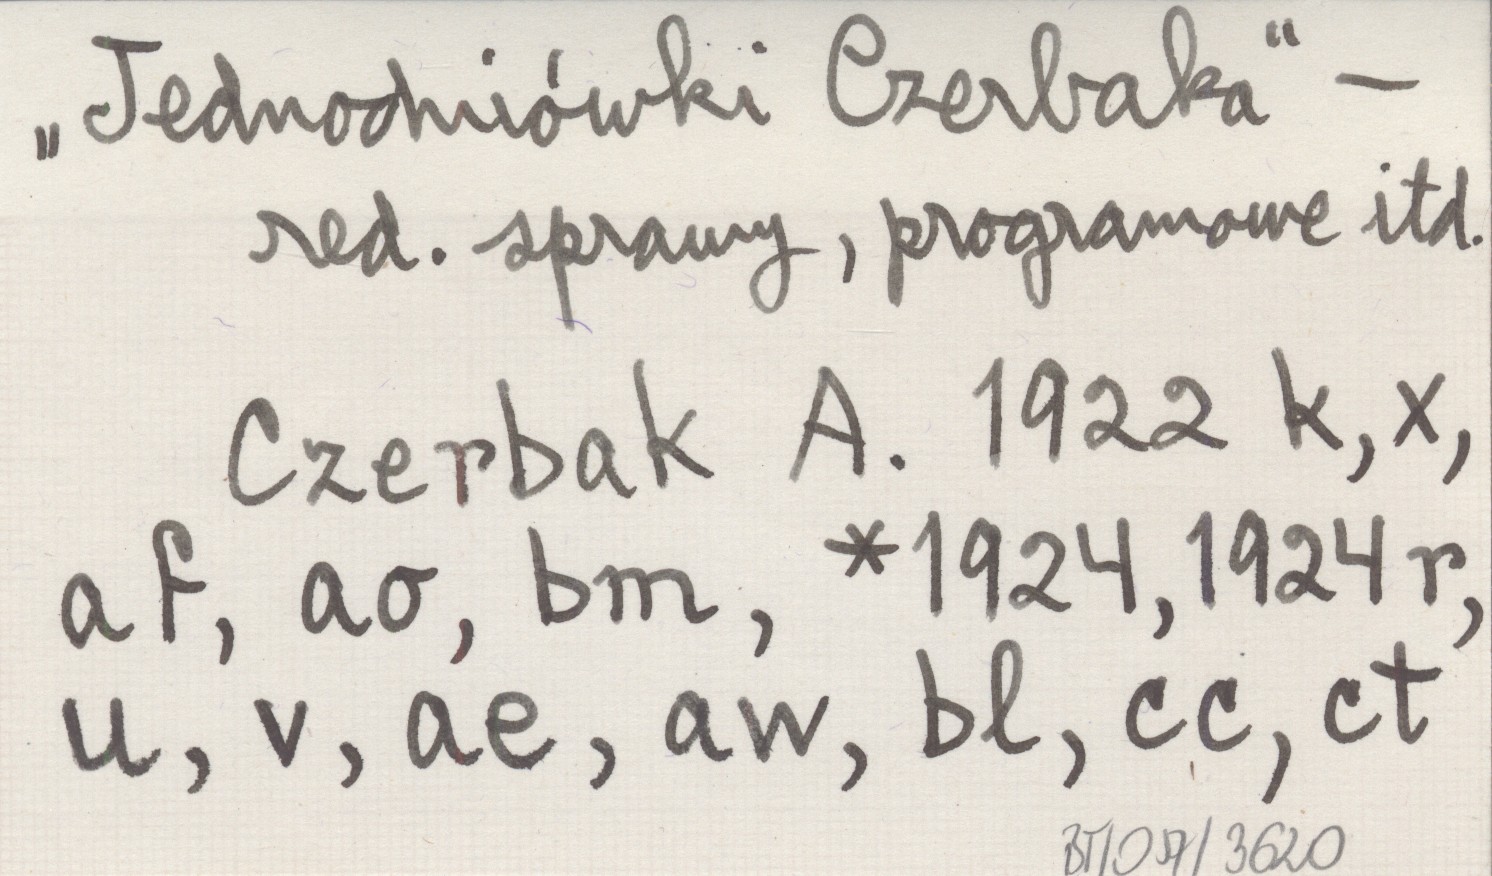 „Jednodniówki Czerbaka“ —
red. sprawy, programowe itd.
Czerbak A. 1922 k, x,
af, ao, bm, *1924, 1924 r,
u, v, ae, aw, bl, cc, ct
BT/057/3620